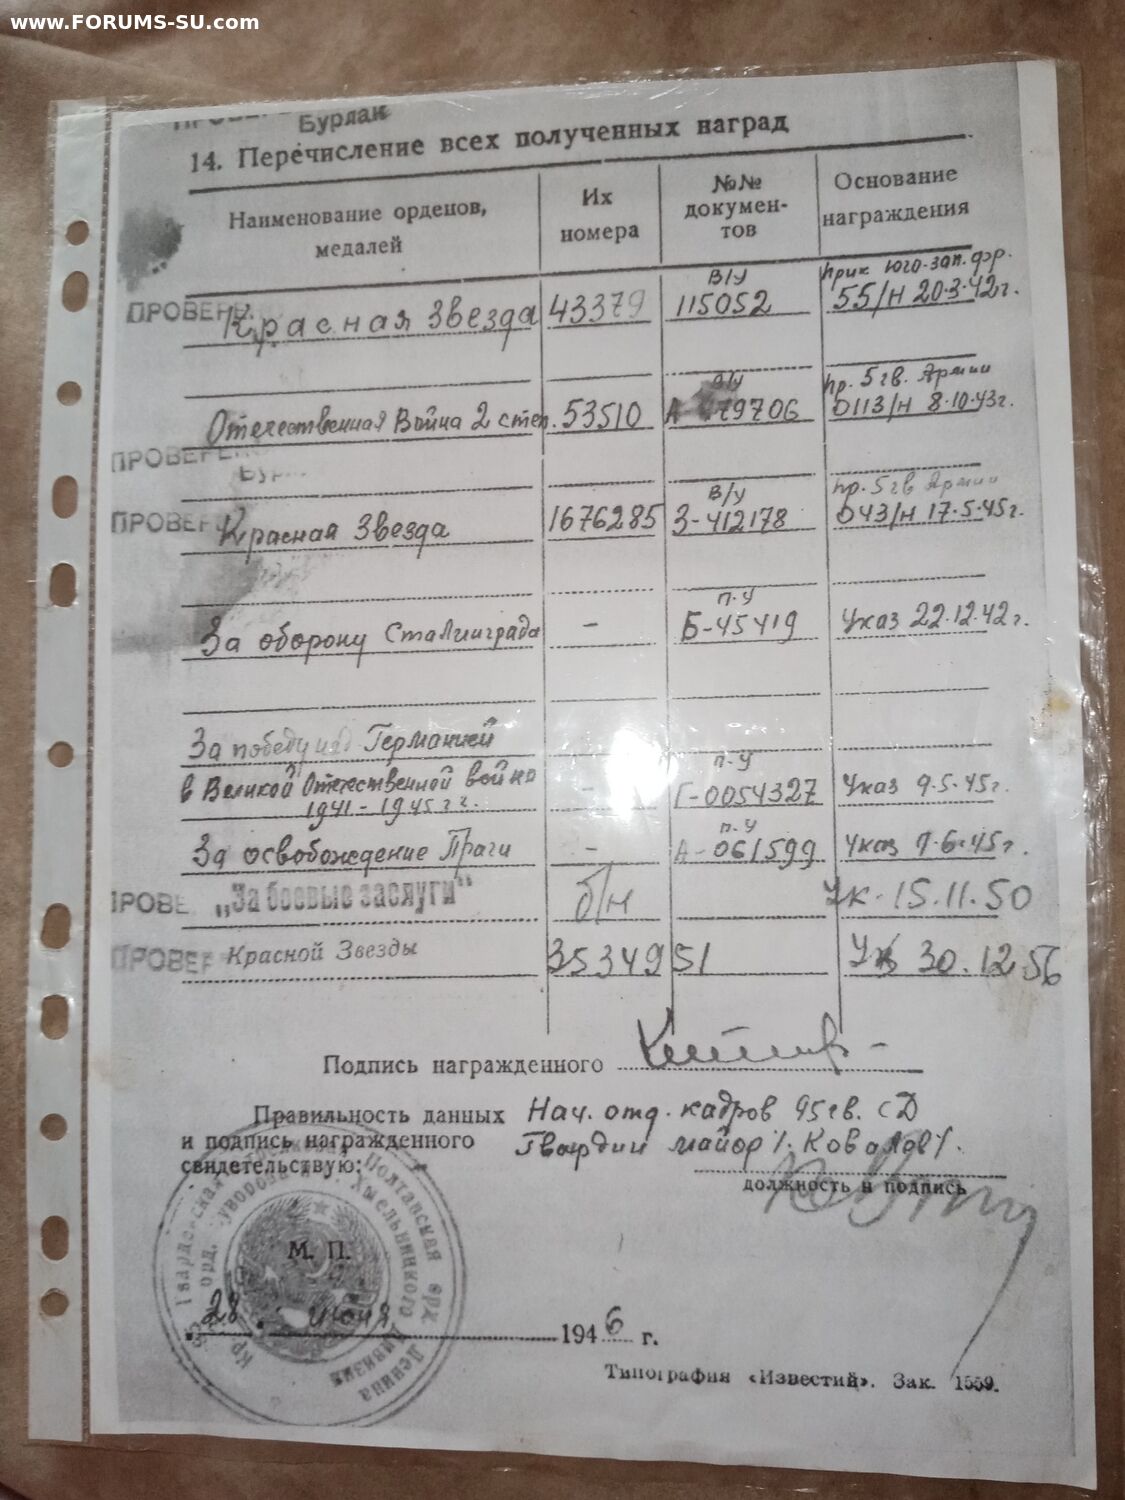 www.FORUMS-SU.com
Бурлак
14. Перечисление всех полученных наград
Наименование орденов, медалей
Их номера
№№ докумен-тов
Основание награждения
В/У прик Юго-зап. фр.
ПРОВЕРЕ Красная Звезда 43379 115052 55/Н 20.3.42г.
пр. 5 гв. Армии
Отечественная Война 2 степ. 53510 79706 0113/Н 8.10.43г.
ПРОВЕРЕНО
В/У пр. 5 гв Армии
ПРОВЕР Красная Звезда 1676285 З-412178 043/Н 17.5.45г.
П.У
За оборону Сталинграда – Б-45419 Указ 22.12.42г.
За победу над Германией
П-У
в Великой Отечественной войне – Г-0054327 Указ 9.5.45г.
1941-1945 г.г.
П.У
За освобождение Праги – А-061599 Указ 9.6.45г.
ПРОВЕ „За боевые заслуги" б/н Ук. 15.11.50
ПРОВЕР Красной Звезды 3534951 30.12.56
Подпись награжденного
Правильность данных Нач. отд. кадров 95 гв. СД
и подпись награжденного Гвардии майор /. Ковалов /.
свидетельствую:
должность и подпись
М. П.
28 июня 1946 г.
Типография «Известий». Зак. 1559.